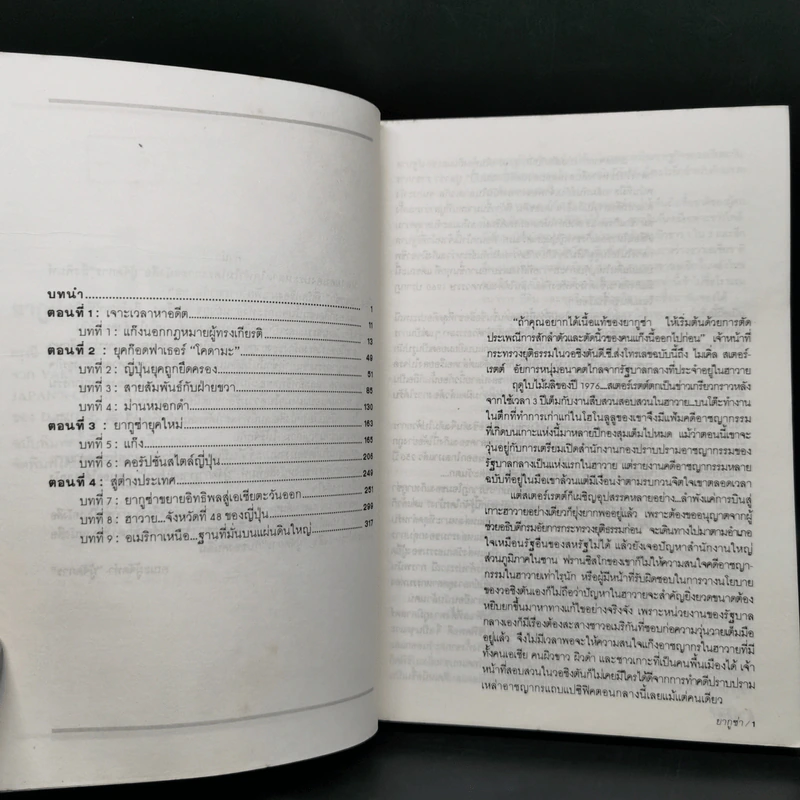 บทนำ.......... 1
ตอนที่ 1: เจาะเวลาหาอดีต.......... 11
บทที่ 1 : แก๊งนอกกฎหมายผู้ทรงเกียรติ.......... 13
ตอนที่ 2 : ยุคก๊อดฟาเธอร์ "โคดามะ".......... 49
บทที่ 2 : ญี่ปุ่นยุคถูกยึดครอง.......... 51
บทที่ 3 : สายสัมพันธ์กับฝ่ายขวา.......... 85
บทที่ 4 : ม่านหมอกดำ.......... 130
ตอนที่ 3 : ยากูซ่ายุคใหม่.......... 163
บทที่ 5 : แก๊ง.......... 165
บทที่ 6 : คอรัปชันสไตล์ญี่ปุ่น.......... 206
ตอนที่ 4 : สู่ต่างประเทศ.......... 249
บทที่ 7 : ยากูซ่าขยายอิทธิพลสู่เอเชียตะวันออก.......... 251
บทที่ 8 : ฮาวาย...จังหวัดที่ 48 ของญี่ปุ่น.......... 299
บทที่ 9 : อเมริกาเหนือ...ฐานที่มั่นบนแผ่นดินใหญ่.......... 317
"ถ้าคุณอยากได้เนื้อแท้ของยากูซ่า ให้เริ่มต้นด้วยการตัด
ประเพณีการสักลำตัวและตัดนิ้วของคนแก๊งนี้ออกไปก่อน" เจ้าหน้าที่
กระทรวงยุติธรรมในวอชิงตันดี.ซี.ส่งโทรเลขฉบับนี้ถึง ไมเคิล สเตอร์-
เรตต์ อัยการหนุ่มอนาคตไกลจากรัฐบาลกลางที่ประจำอยู่ในฮาวาย
ฤดูใบไม้ผลิของปี 1976...สเตอร์เรตต์ตกเป็นข่าวเกรียวกราวหลัง
จากใช้เวลา 3 ปีเต็มกับงานสืบสวนสอบสวนในฮาวาย...บนโต๊ะทำงาน
ในตึกที่ทำการเก่าแก่ในโฮโนลูลูของเขาจึงมีแฟ้มคดีอาชญากรรม
ที่เกิดบนเกาะแห่งนี้มาหลายปีกองสุมเต็มไปหมด แม้ว่าตอนนี้เขาจะ
วุ่นอยู่กับการเตรียมเปิดสำนักงานกองปราบปรามอาชญากรรมของ
รัฐบาลกลางเป็นแห่งแรกในฮาวาย แต่รายงานคดีอาชญากรรมหลาย
ฉบับที่อยู่ในมือเขาล้วนแต่มีเงื่อนงำตามรบกวนจิตใจเขาตลอดเวลา
แต่สเตอร์เรตต์ก็เผชิญอุปสรรคหลายอย่าง...ลำพังแค่การบินสู่
เกาะฮาวายอย่างเดียวก็ยุ่งยากพออยู่แล้ว เพราะต้องขออนุญาตจากผู้
ช่วยอธิบดีกรมอัยการกระทรวงยุติธรรมก่อน จะเดินทางไปมาตามอำเภอ
ใจเหมือนรัฐอื่นของสหรัฐไม่ได้ แล้วยังเจอปัญหาสำนักงานใหญ่
ส่วนภูมิภาคในซาน ฟรานซิสโกของเขาก็ไม่มีความสนใจคดีอาชญา-
กรรมในฮาวายเท่าไรนัก หรือผู้มีหน้าที่รับผิดชอบในการวางนโยบาย
ของวอชิงตันเองก็ไม่ถือว่าปัญหาในฮาวายจะสำคัญยิ่งยวดขนาดต้อง
หยิบยกขึ้นมาหาทางแก้ไขอย่างจริงจัง เพราะหน่วยงานของรัฐบาล
กลางเองก็มีเรื่องต้องสะสางชาวอเมริกันที่ชอบก่อความวุ่นวายเต็มมือ
อยู่แล้ว จึงไม่มีเวลาพอจะให้ความสนใจแก๊งอาชญากรในฮาวายที่มี
ทั้งคนเอเชีย คนผิวขาว ผิวดำ และชาวเกาะที่เป็นคนพื้นเมืองได้ เจ้า
หน้าที่สอบสวนในวอชิงตันก็ไม่เคยมีใครได้ดีจากการทำคดีปราบปราม
เหล่าอาชญากรแถบแปซิฟิคตอนกลางนี้เลยแม้แต่คนเดียว
ยากูซ่า / 1